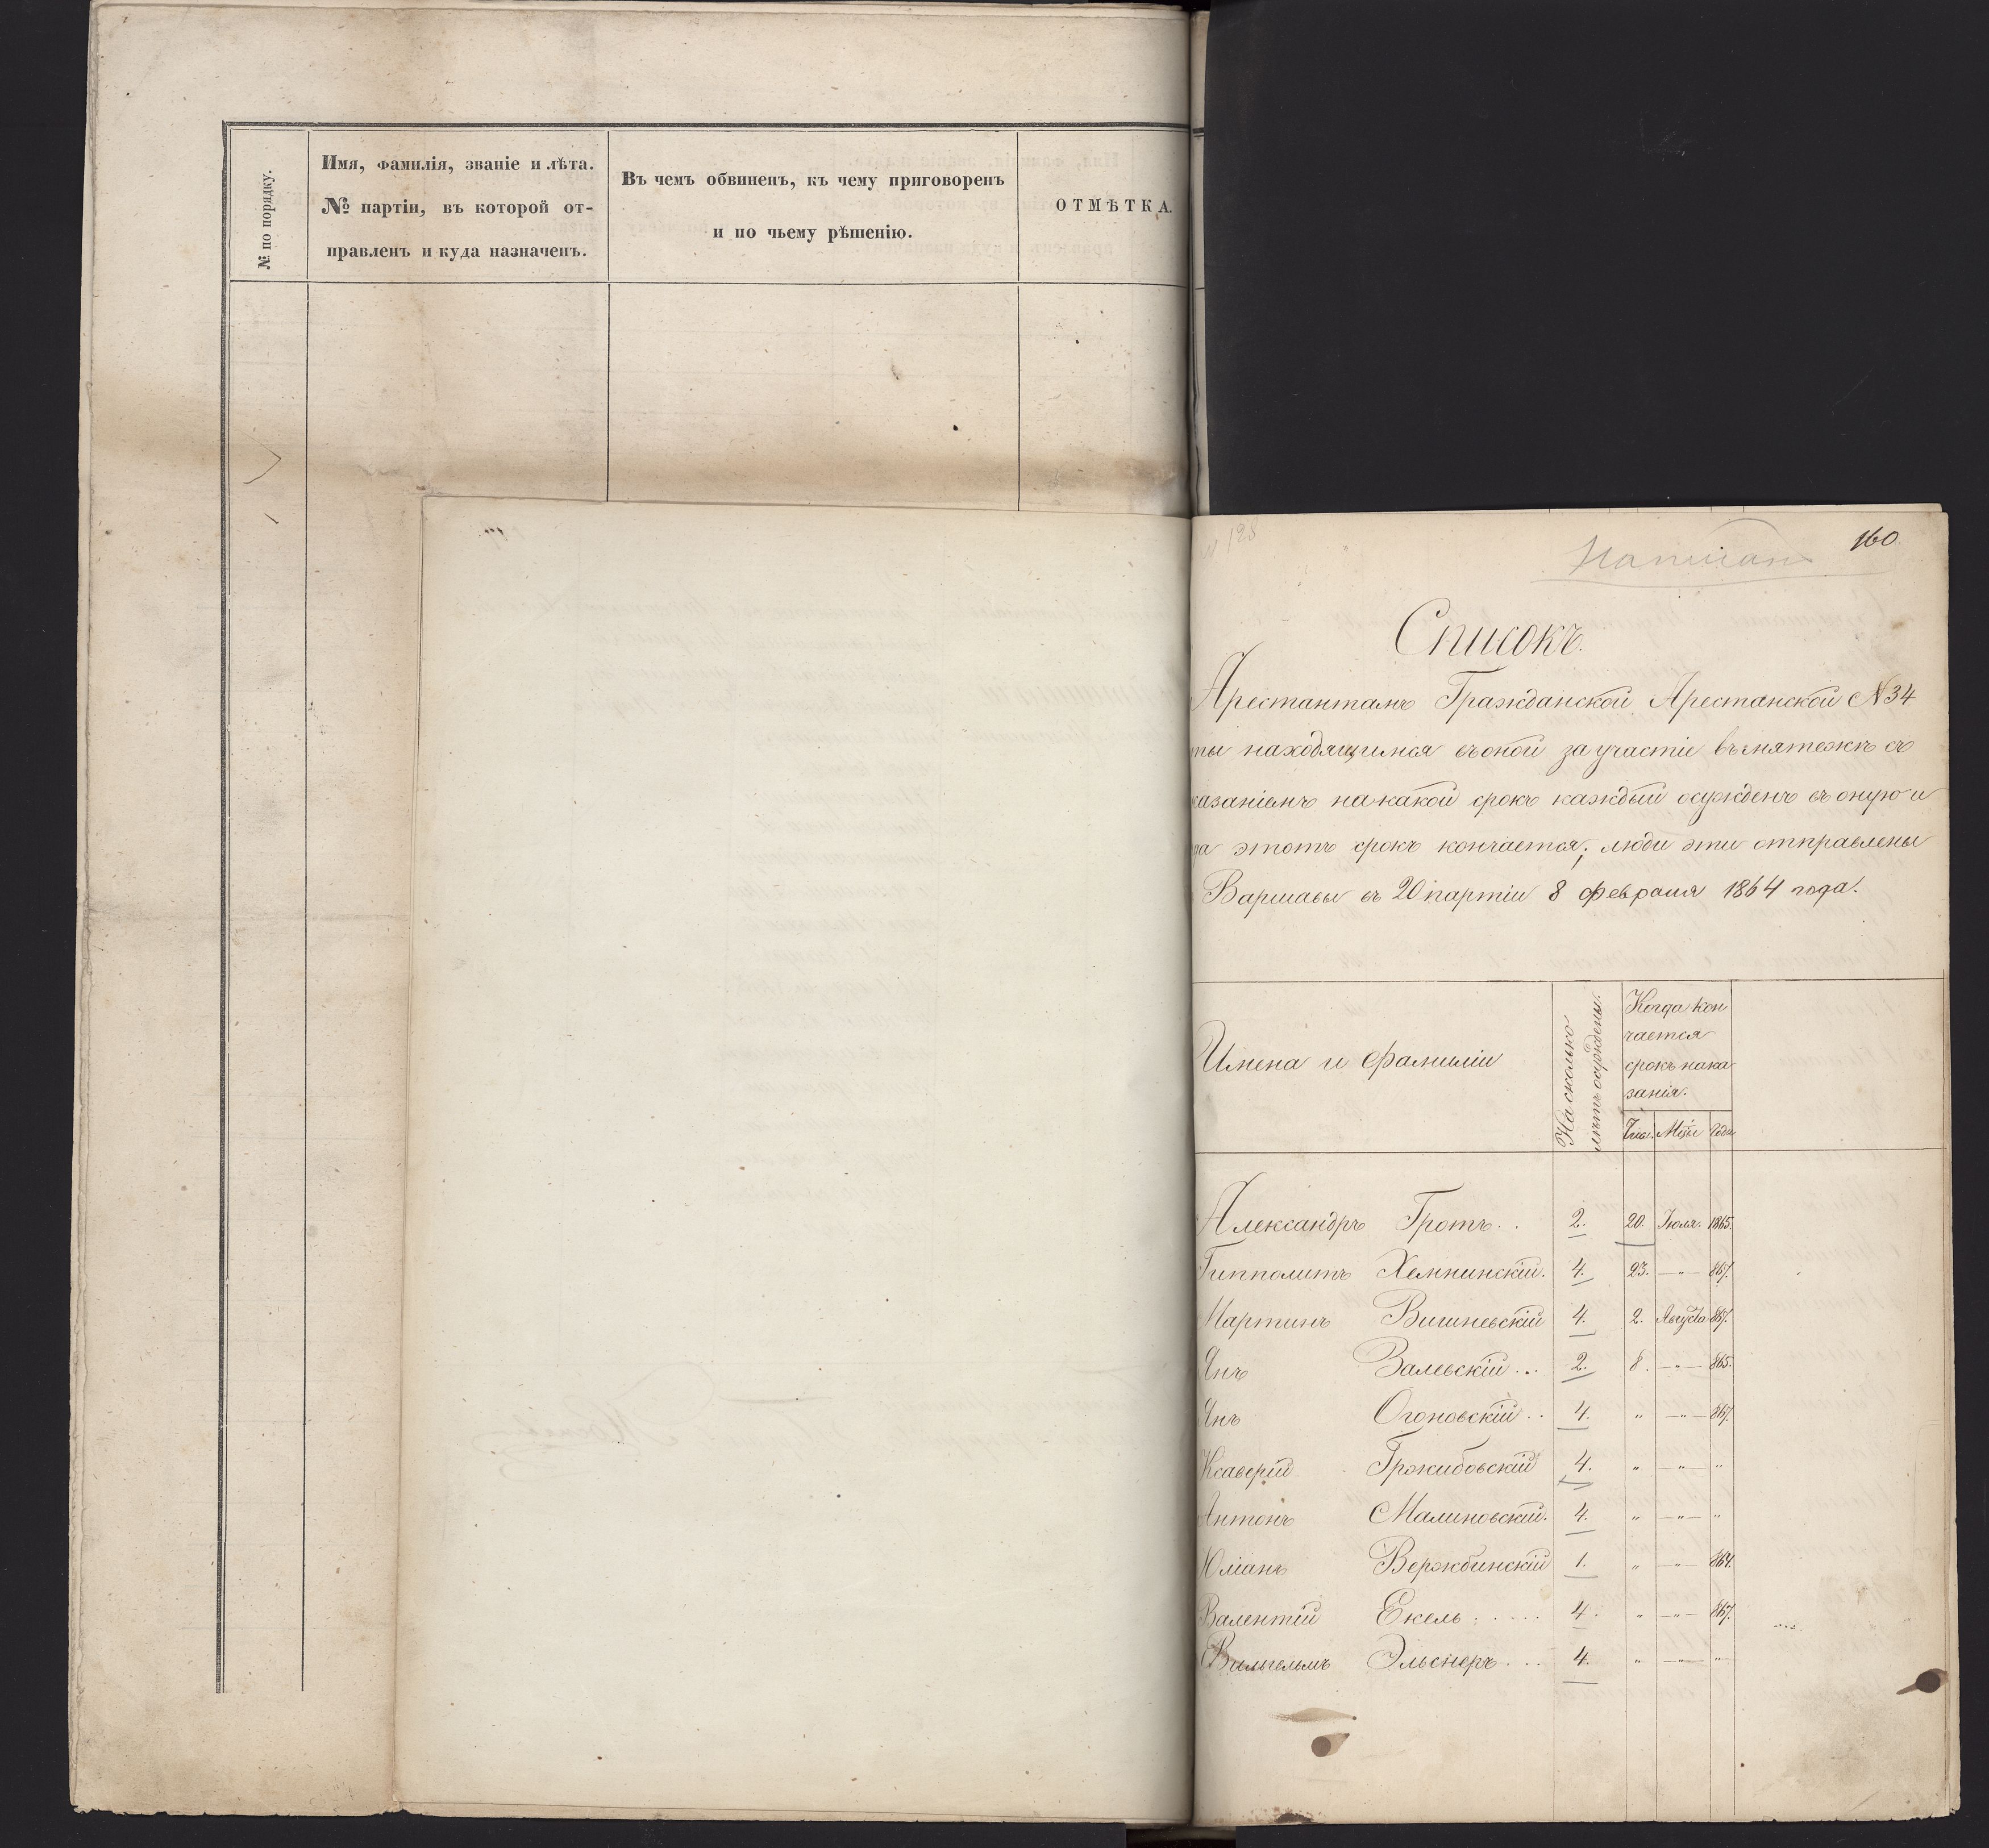 № по порядку.
Имя, фамилія, званіе и лѣта.
№ партіи, въ которой от-
правленъ и куда назначенъ.
Въ чемъ обвиненъ, къ чему приговоренъ
и по чьему рѣшенію.
ОТМѢТКА.
160
N 128
Списокъ.
Арестантамъ Гражданской Арестанской N 34
ты находящимся въ оной за участіе въ мятежѣ съ
казаніемъ на какой срокъ каждый осужденъ въ оную и
да этотъ срокъ кончается; люди эти отправлены
Варшавы въ 20 партіи 8 Февраля 1864 года.
Имена и Фамиліи
На сколько
лѣтъ осуждены.
Когда кон
чается
срокъ нака
занія.
Числ. Мѣцы Года
Александръ Гротъ . . 2. 20. Іюля. 1865.
Гипполитъ Хемпинскій. 4. 23. —"— 867.
Мартинъ Вишневскій 4. 2. Августа 867.
Янъ Залевскій . . . 2. 8. —"— 865.
Янъ Огоновскій . . 4. " —"— 867.
Ксаверій Гржибовскій 4. " —"— "
Антонъ Малиновскій. 4. " —"— "
Юліанъ Вержбинскій 1. " —"— 864.
Валентій Екель . . . . . 4. " —"— 867.
Вильгельмъ Эльснеръ . . . 4. " —"— "